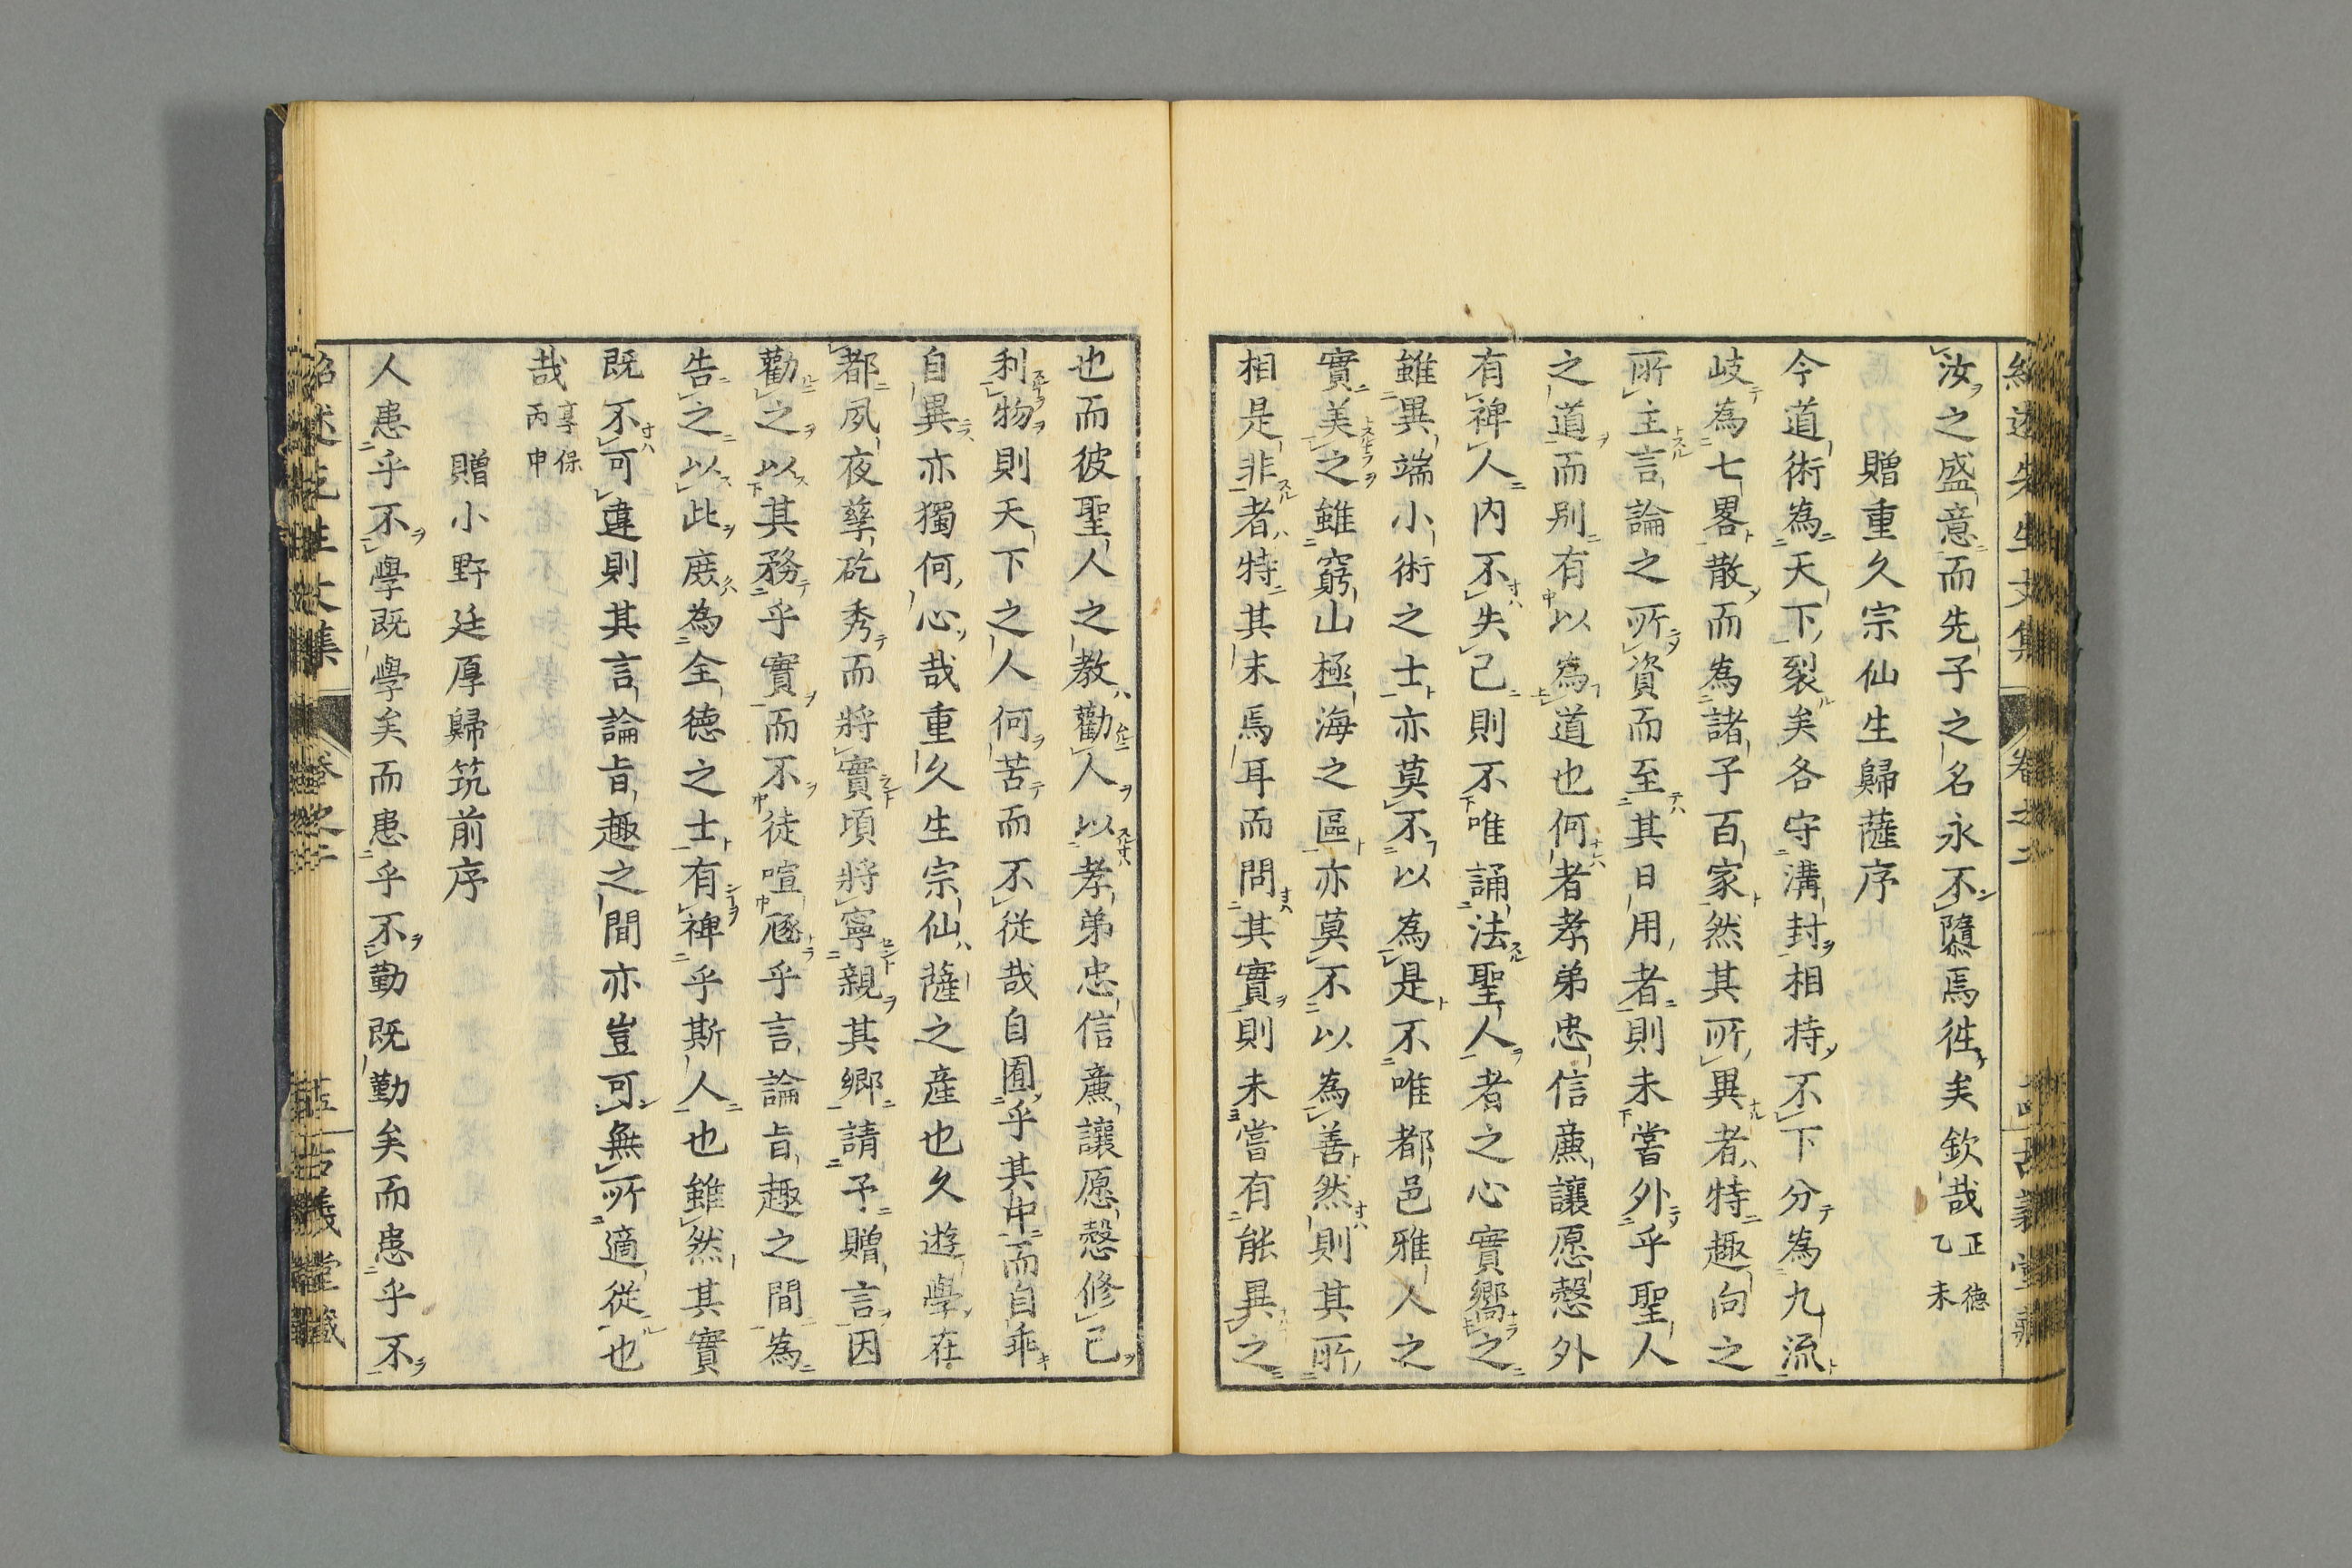 汝之盛意而先子之名永不隳焉徃矣欽哉正德乙未
贈重久宗仙生歸薩序
今道術為天下裂矣各守溝封相持不下分為九流
岐為七畧散而為諸子百家然其所異者特趣向之
所主言論之所資而至其日用者則未嘗外乎聖人
之道而別有以為道也何者孝弟忠信廉讓愿愨外
有裨人內不失己則不唯誦法聖人者之心實嚮之
雖異端小術之士亦莫不以為是不唯都邑雅人之
實美之雖窮山極海之區亦莫不以為善然則其所
相是非者特其末焉耳而問其實則未嘗有能異之
也而彼聖人之教勸人以孝弟忠信廉讓愿愨修己
利物則天下之人何苦而不從哉自囿乎其中而自乖
自異亦獨何心哉重久生宗仙薩之產也久遊學在
都夙夜孳矻秀而將實頃將寧親其鄉請予贈言因
勸之以其務乎實而不徒喧豗乎言論旨趣之間為
告之以此庶為全德之士有裨乎斯人也雖然其實
既不可違則其言論旨趣之間亦豈可無所適從也
哉享保丙申
贈小野廷厚歸筑前序
人患乎不學既學矣而患乎不勤既勤矣而患乎不
紹述先生文集 卷之二 古義堂藏